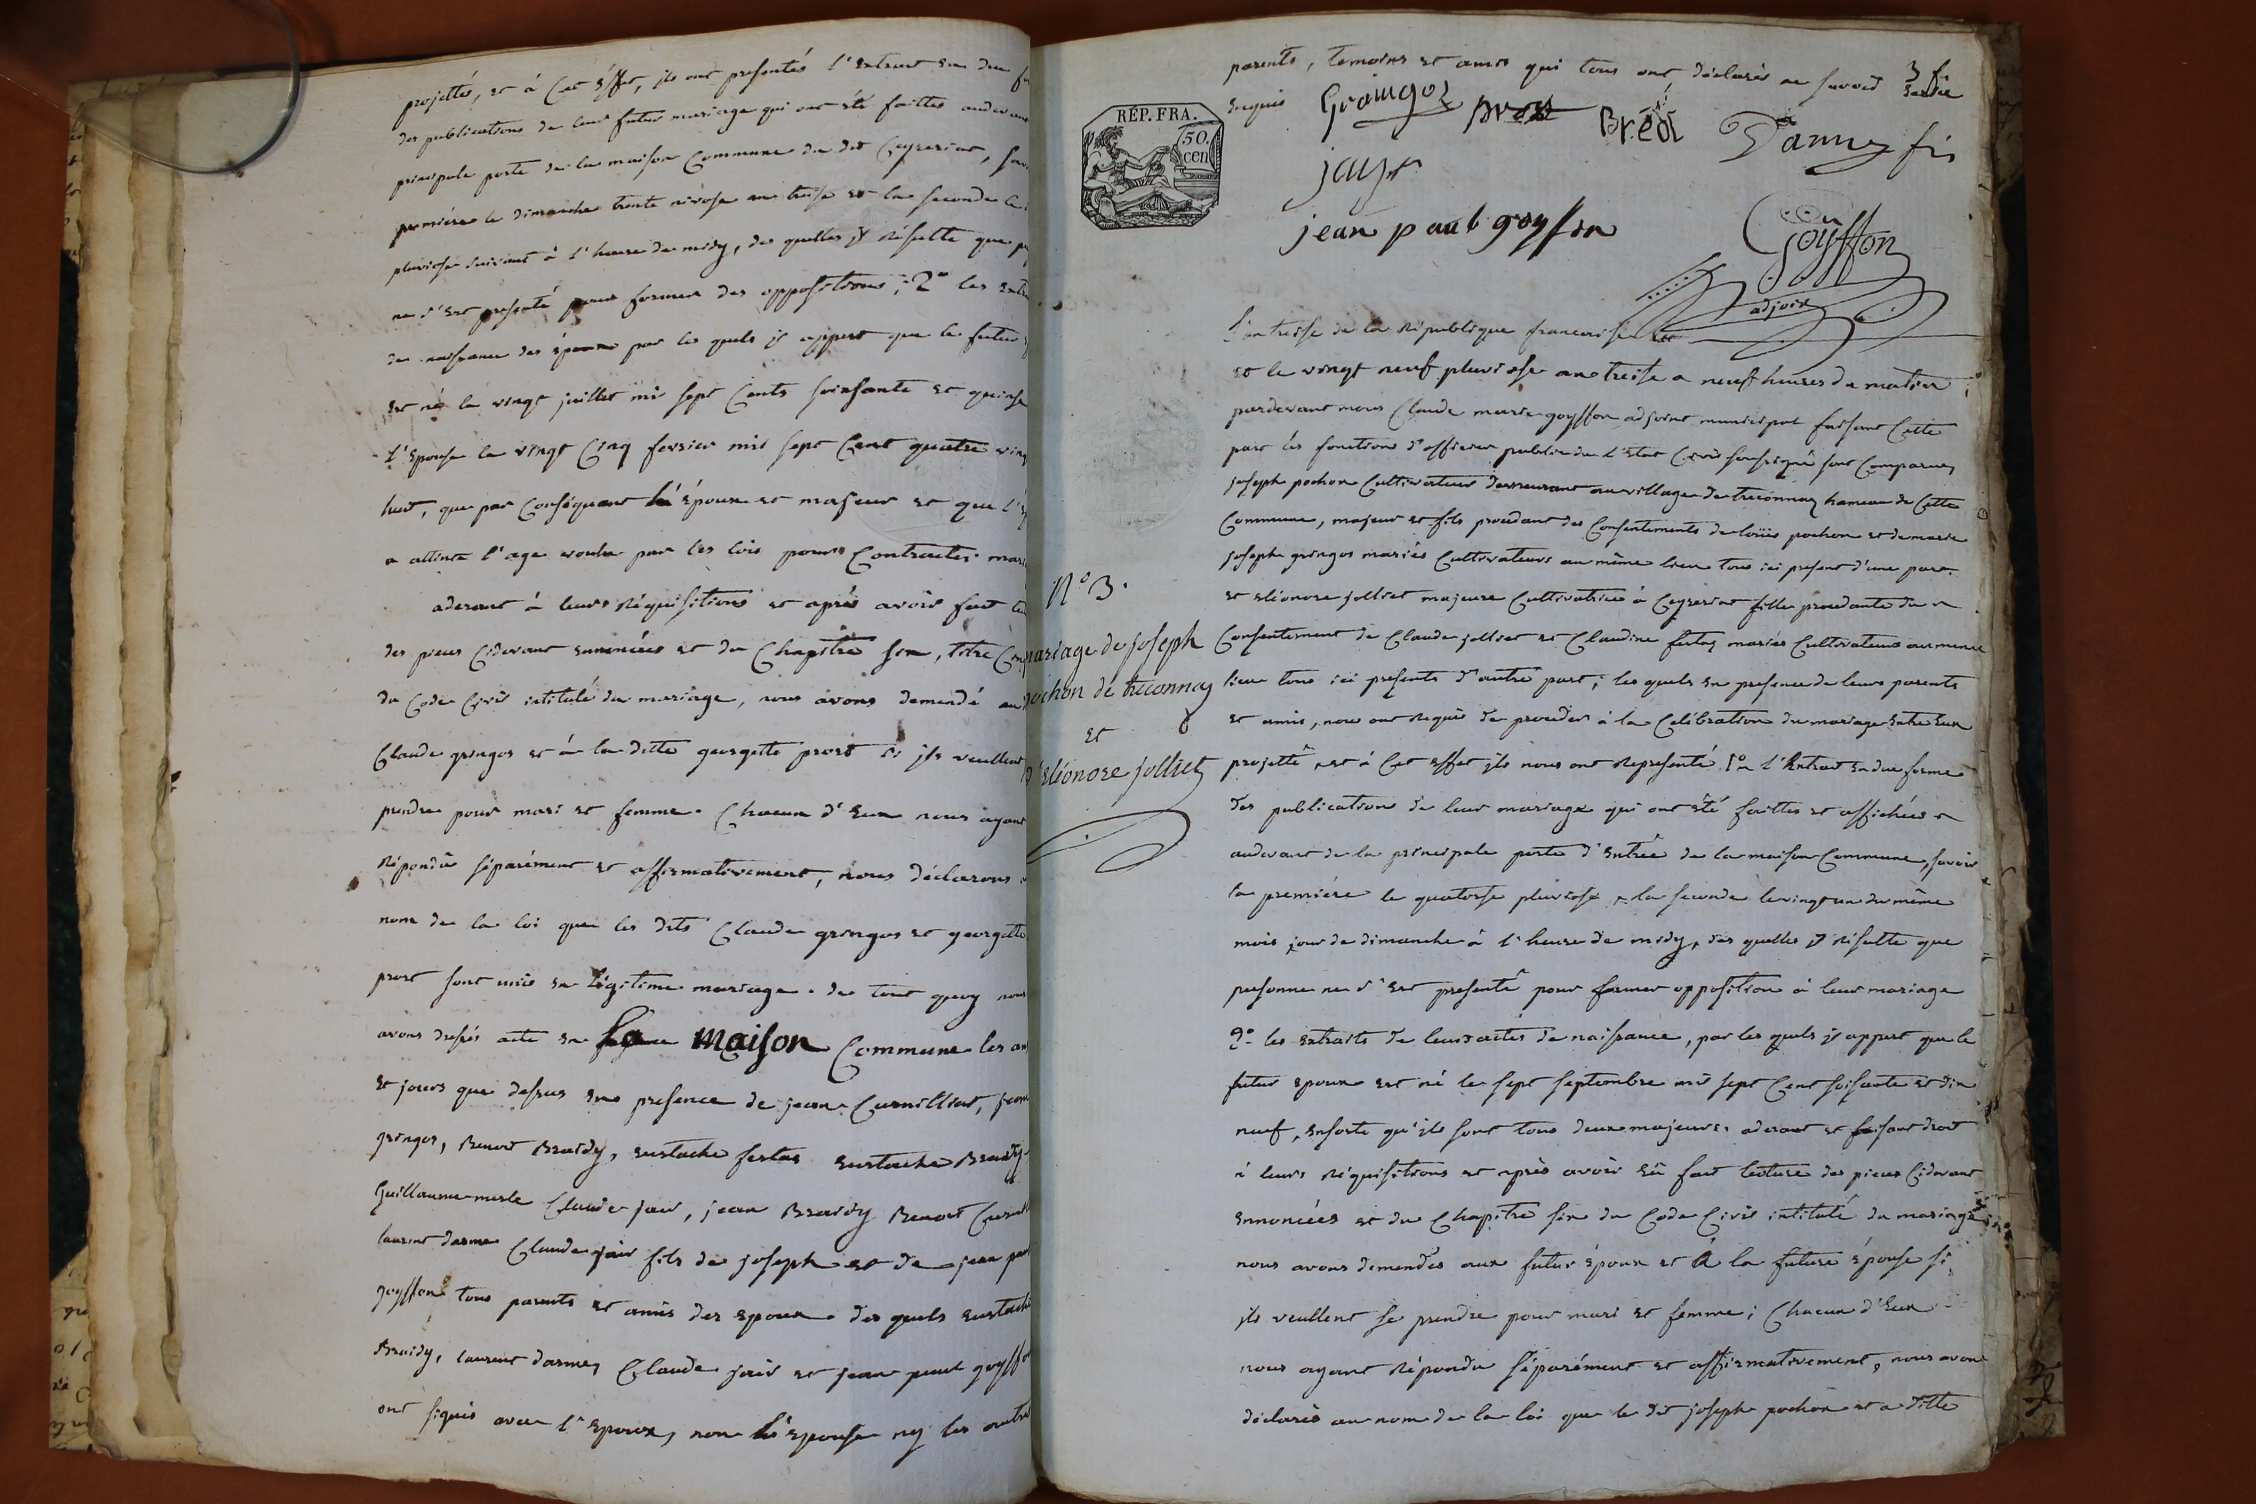 projettés, et à cet effet, ils ont présentés l'extrait en due
des publications de leur futur mariage qui ont été faittes audevant
principale porte de la maison commune du dit Ceyzeriat,
première le dimanche trente nivose an treise et la seconde le
pluviose suivant à l'heure de midy, des quelles il résulte que
ne s'est présenté pour former des oppositions; 2° les
de naissance des époux par les quels il appert que le futur
est né le vingt juillet mil sept cents soixante et quinse
l'épouse le vingt cinq fevrier mil sept cent quatre
huit, que par conséquent l'époux est majeur et que
a attint l'age voulu par les lois pour contracter
aderant à leurs réquisitions et après avoir fait
des pieces cidevant énnoncées et du chapitre six, titre
du Code Civil intitulé du mariage, nous avons demandé au
Claude gringoz et à la ditte georgette prost si ils veullent
prendre pour mari et femme. Chacun d'eux nous ayant
répondû séparément et affirmativement, nous déclarons
nom de la loi que les dits Claude gringoz et georgette
prost sont unis en légitime mariage. de tout quoy nous
avons dressés acte en la maison commune les an
et jours que dessus en presence de jean Curnilliat, jean
gringoz, Benoit Braidy, eustache festas eustache Braidy
Guillaume merle Claude jair, jean Braidy Benoit
laurent darme Claude jair fils de joseph et de jean
goyffon tous parents et amis des epoux. des quels
Braidy, laurent darmes Claude jair et jean paul
ont signés avec l'epoux, non l'épouse ny les
parents, temoins et amis qui tous ont déclarés ne savoir
requis
Graingoz
Bredi
Darme fis
RÉP. FRA.
50.
cen
jayr
jean paul goyffon
Goyffon
adjoint
L'an treise de la république francaise
et le vingt neuf pluviose an treise a neuf heures du matin
pardevant nous Claude marie goyffon adjoint municipal faisant cette
part les fonctions d'officier public de l'etat Civil soussigné sont comparus
joseph pochon cultivateur demeurant au village de treconnaz hameau de cette
commune, majeur et fils procedant des consentements de loüis pochon et de marie
joseph gringoz mariés cultivateurs au même lieu tous ici present d'une part.
et eléonore jolliet majeure cultivatrice à Ceyzeriat fille procedante du
consentement de Claude jolliet et Claudine festaz mariés cultivateurs au meme
lieu tous ici presents d'autre part; les quels en presence de leurs parents
et amis, nous ont requis de proceder à la celébration du mariage entre eux
projetté, et à cet effet ils nous ont représenté. 1° l'extrait en due forme
des publications de leur mariage qui ont été faittes et affichées
audevant de la principale porte d'entrée de la maison commune, savoir
la première le quatorse pluviose, la seconde le vingt un du même
mois jour de dimanche à l'heure de midy, des quelles il résulte que
personne ne s'est presenté pour former opposition à leur mariage
2° les extraits de leurs actes de naissance, par les quels il appert que le
futur epoux est né le sept septembre mil sept cent soisante et dix
neuf, ensorte qu'ils sont tous deux majeurs. aderant et faisant droit
à leurs réquisitions et après avoir fait lecture des pieces cidevant
énnoncées et du chapitre six du Code Civil intitulé du mariage
nous avons demandés aux futur époux et à la future épouse si
ils veullent se prendre pour mari et femme; Chacun d'eux
nous ayant répondu séparément et affirmativement, nous avons
déclarés au nom de la loi que le dit joseph pochon et a ditte
N° 3.
mariage de joseph
pochon de treconnaz
et
d'eléonore jolliet